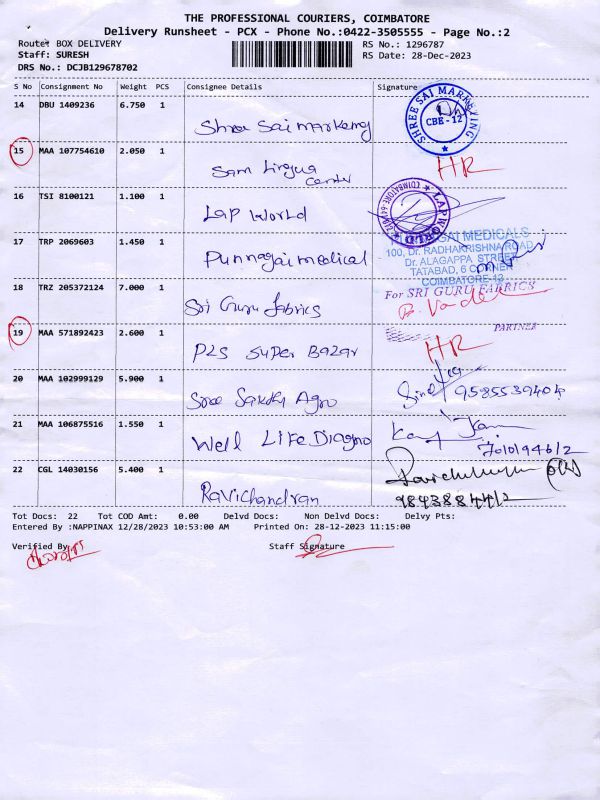 THE PROFESSIONAL COURIERS, COIMBATORE
Delivery Runsheet - PCX - Phone No.:0422-3505555 - Page No.:2
Route: BOX DELIVERY RS No.: 1296787
Staff: SURESH RS Date: 28-Dec-2023
DRS No.: DCJB129678702
S No Consignment No Weight PCS Consignee Details Signature
14 DBU 1409236 6.750 1
Shree Sai Marketing
SHREE SAI MARKETING
CBE-12
15 MAA 107754610 2.050 1
Sam Lingua HR
Center
16 TSI 8100121 1.100 1
Lap World
LAP WORLD
17 TRP 2069603 1.450 1
Punnagai medical
MEDICALS
100, Dr. RADHAKRISHNA ROAD
Dr. ALAGAPPA STREET
TATABAD, 6 CORNER
COIMBATORE-12
18 TRZ 205372124 7.000 1
Sri Guru fabrics
For SRI GURU FABRICS
PARTNER
19 MAA 571892423 2.600 1
PLS Super Bazar HR
20 MAA 102999129 5.900 1
Sree Sakthi Agro 9585539404
21 MAA 106875516 1.550 1
Well Life Diagno
7010194612
22 CGL 14030156 5.400 1
Ravichandran 9843884412
Tot Docs: 22 Tot COD Amt: 0.00 Delvd Docs: Non Delvd Docs: Delvy Pts:
Entered By :NAPPINAX 12/28/2023 10:53:00 AM Printed On: 28-12-2023 11:15:00
Verified By Staff Signature